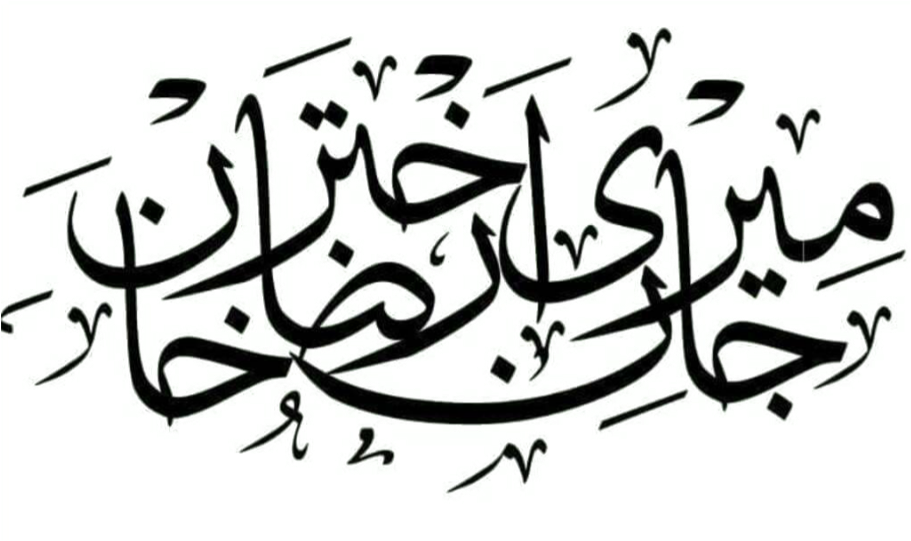 میری جان اختر رضا خان